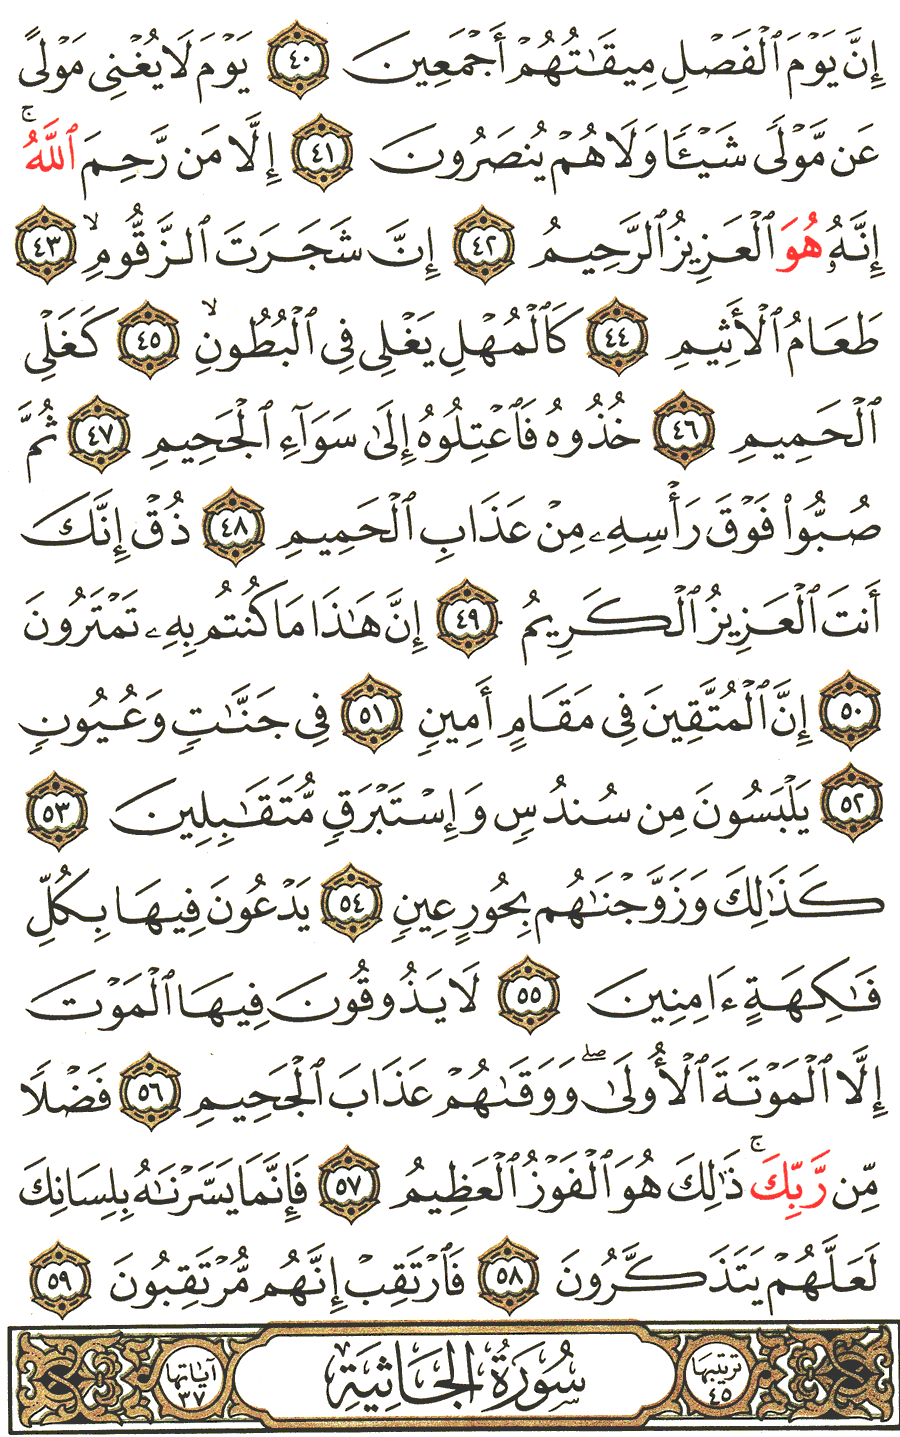 إِنَّ يَوْمَ ٱلْفَصْلِ مِيقَٰتُهُمْ أَجْمَعِينَ ٤٠ يَوْمَ لَا يُغْنِى مَوْلًى
عَن مَّوْلًى شَيْـًٔا وَلَا هُمْ يُنصَرُونَ ٤١ إِلَّا مَن رَّحِمَ ٱللَّهُ ۚ
إِنَّهُۥ هُوَ ٱلْعَزِيزُ ٱلرَّحِيمُ ٤٢ إِنَّ شَجَرَتَ ٱلزَّقُّومِ ۙ ٤٣
طَعَامُ ٱلْأَثِيمِ ٤٤ كَٱلْمُهْلِ يَغْلِى فِى ٱلْبُطُونِ ۙ ٤٥ كَغَلْىِ
ٱلْحَمِيمِ ٤٦ خُذُوهُ فَٱعْتِلُوهُ إِلَىٰ سَوَآءِ ٱلْجَحِيمِ ٤٧ ثُمَّ
صُبُّوا۟ فَوْقَ رَأْسِهِۦ مِنْ عَذَابِ ٱلْحَمِيمِ ٤٨ ذُقْ إِنَّكَ
أَنتَ ٱلْعَزِيزُ ٱلْكَرِيمُ ٤٩ إِنَّ هَٰذَا مَا كُنتُم بِهِۦ تَمْتَرُونَ
٥٠ إِنَّ ٱلْمُتَّقِينَ فِى مَقَامٍ أَمِينٍ ٥١ فِى جَنَّٰتٍ وَعُيُونٍ
٥٢ يَلْبَسُونَ مِن سُندُسٍ وَإِسْتَبْرَقٍ مُّتَقَٰبِلِينَ ٥٣
كَذَٰلِكَ وَزَوَّجْنَٰهُم بِحُورٍ عِينٍ ٥٤ يَدْعُونَ فِيهَا بِكُلِّ
فَٰكِهَةٍ ءَامِنِينَ ٥٥ لَا يَذُوقُونَ فِيهَا ٱلْمَوْتَ
إِلَّا ٱلْمَوْتَةَ ٱلْأُولَىٰ ۖ وَوَقَىٰهُمْ عَذَابَ ٱلْجَحِيمِ ٥٦ فَضْلًا
مِّن رَّبِّكَ ۚ ذَٰلِكَ هُوَ ٱلْفَوْزُ ٱلْعَظِيمُ ٥٧ فَإِنَّمَا يَسَّرْنَٰهُ بِلِسَانِكَ
لَعَلَّهُمْ يَتَذَكَّرُونَ ٥٨ فَٱرْتَقِبْ إِنَّهُم مُّرْتَقِبُونَ ٥٩
ترتيبها ٤٥ سُورَةُ الجَاثِيَةِ آياتها ٣٧